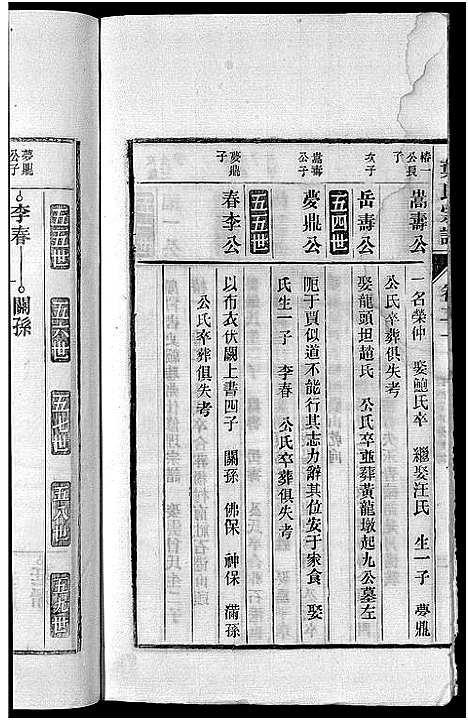 葉氏宗譜
卷二十一
椿一公長子
嵩壽公
一名榮仲 娶鮑氏卒 繼娶汪氏 生一子 夢鼎
公氏卒葬俱失考
次子
岳壽公
娶龍頭坦趙氏 公氏卒並葬黃龍墩起九公墓左
五四世
嵩壽公子
夢鼎公
阨于賈似道不能行其志力辭其位安于家食 娶
氏生一子 李春 公氏卒葬俱失考
五五世
夢鼎公子
春李公
以布衣伏闕上書四子 關孫 佛保 神保 滿孫
公氏卒葬俱失考
五五世 五六世 五七世 五八世 五九世
夢鼎公子
李春 關孫